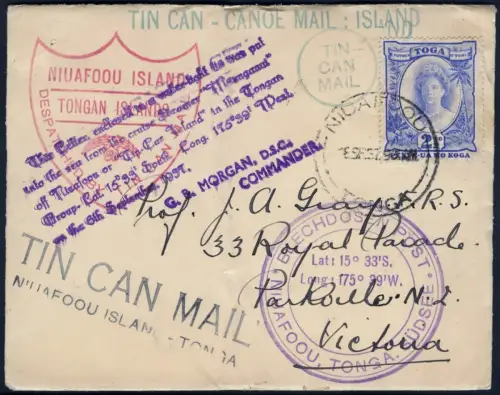 TIN CAN - CANOE MAIL : ISLAND
NIUAFOOU ISLAND
TONGAN ISLANDS
DESPATCHED BY
TIN
CAN
MAIL
TOGA
2½d
NIUAFOOU
This letter enclosed in a
was put
into the sea from the cruise Steamer
off Niuafoou or Tin-Can Island in the Tongan
Group. Lat. 15°33' South. Long. 175°39' West.
on the 6th September 1937.
G. R. MORGAN, D.S.C.
COMMANDER.
Prof. J. A. Gray F.R.S.
33 Royal Parade
Parkville N.2.
Victoria
BLECHDOSEN POST
Lat: 15° 33'S.
Long: 175° 39'W.
NIUAFOOU, TONGA, SÜDSEE
TIN CAN MAIL
NIUAFOOU ISLAND - TONGA